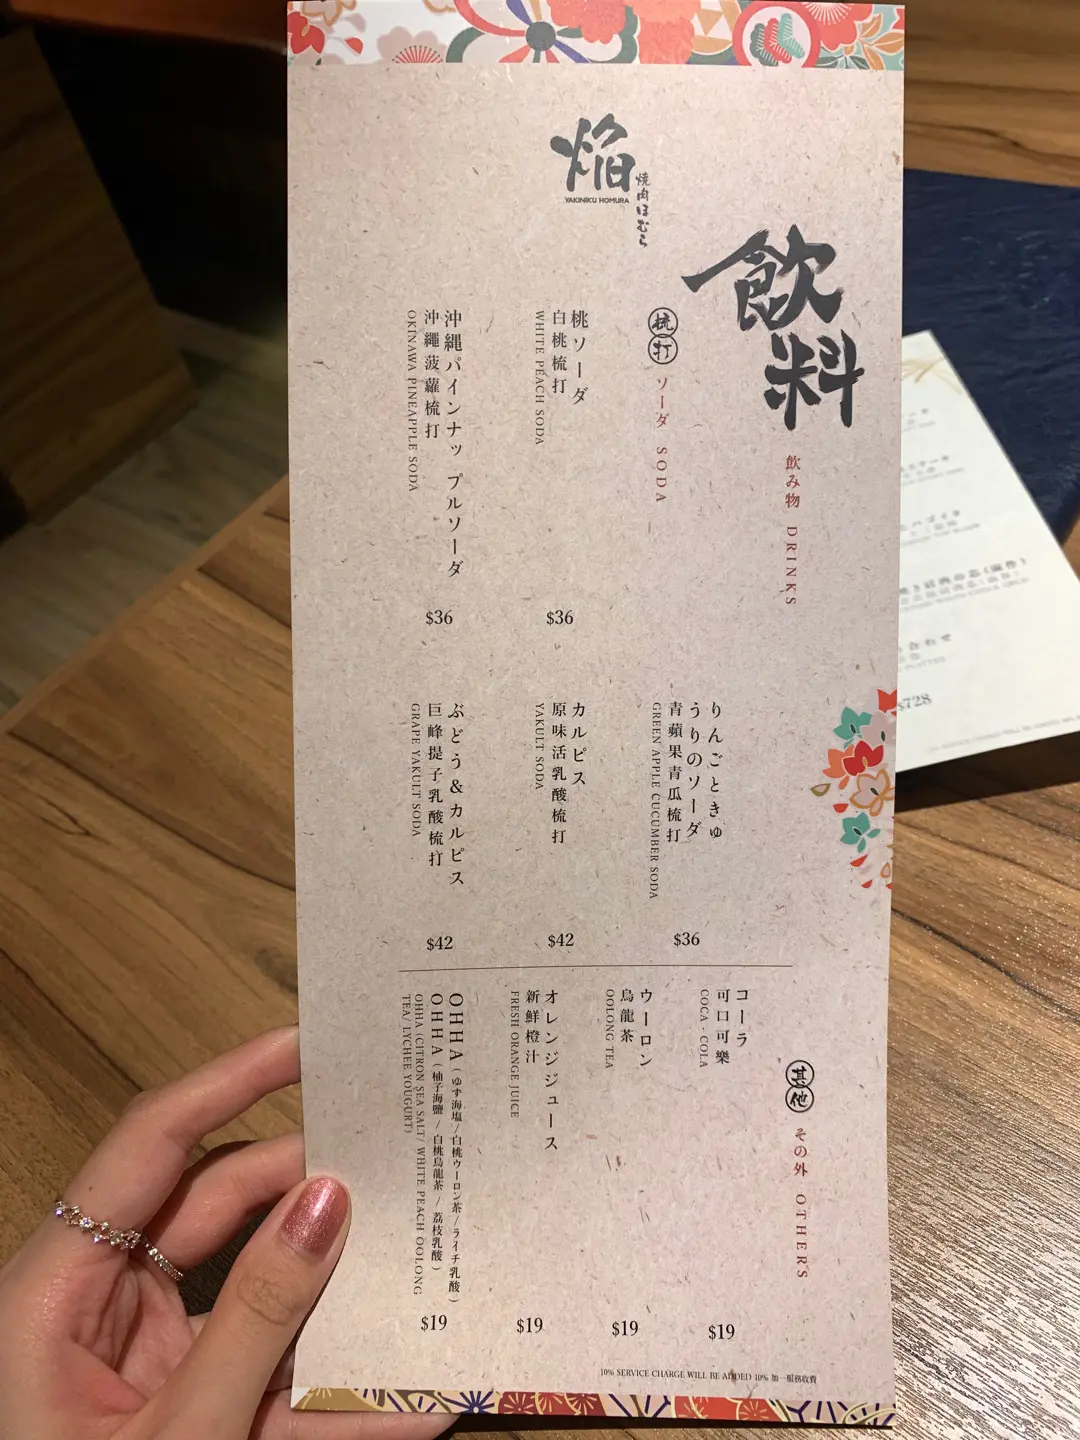 焔
YAKINIKU HOMURA
焼肉ほむら
飲料
飲み物 DRINKS
梳打
ソーダ SODA
桃ソーダ
白桃梳打
WHITE PEACH SODA
$36
沖縄パインナッ プルソーダ
沖繩菠蘿梳打
OKINAWA PINEAPPLE SODA
$36
りんごときゅ
うりのソーダ
青蘋果青瓜梳打
GREEN APPLE CUCUMBER SODA
$36
カルピス
原味活乳酸梳打
YAKULT SODA
$42
ぶどう&カルピス
巨峰提子乳酸梳打
GRAPE YAKULT SODA
$42
其他
その外 OTHERS
コーラ
可口可樂
COCA - COLA
$19
ウーロン
烏龍茶
OOLONG TEA
$19
オレンジジュース
新鮮橙汁
FRESH ORANGE JUICE
$19
OHHA(ゆず海塩/白桃ウーロン茶/ライチ乳酸)
OHHA(柚子海鹽 / 白桃烏龍茶 / 荔枝乳酸)
OHHA (CITRON SEA SALT/ WHITE PEACH OOLONG
TEA/ LYCHEE YOUGURT)
$19
10% SERVICE CHARGE WILL BE ADDED 10% 加一服務收費
$728